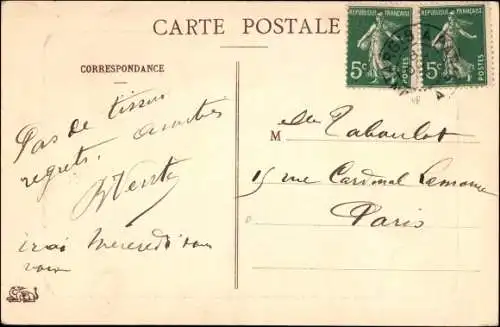 CARTE POSTALE
RÉPUBLIQUE FRANÇAISE
5c
POSTES
RÉPUBLIQUE FRANÇAISE
5c
POSTES
CORRESPONDANCE
Pas de tissus
regrets.
irai Mercredi
voir
M elle Taboulot
15 rue Cardinal Lemoine
Paris